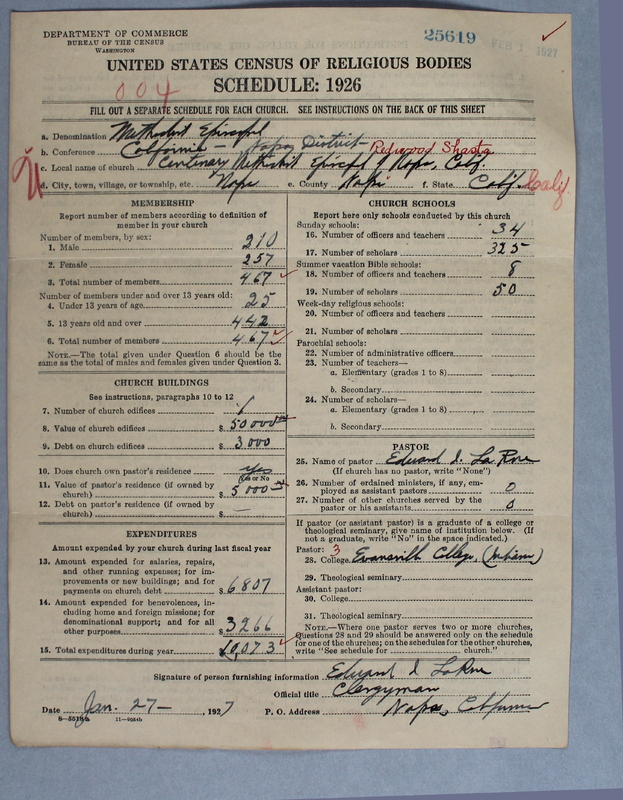 DEPARTMENT OF COMMERCE
BUREAU OF THE CENSUS
WASHINGTON
25619
FEB 1 1927
UNITED STATES CENSUS OF RELIGIOUS BODIES
004
SCHEDULE: 1926
FILL OUT A SEPARATE SCHEDULE FOR EACH CHURCH. SEE INSTRUCTIONS ON THE BACK OF THIS SHEET
a. Denomination Methodist Episcopal
b. Conference California - Napa District - Redwood Shasta
c. Local name of church Centenary Methodist Episcopal, Napa, Calif.
d. City, town, village, or township, etc. Napa e. County Napa f. State Calif. Calif.
MEMBERSHIP
Report number of members according to definition of member in your church
Number of members, by sex:
1. Male 210
2. Female 257
3. Total number of members 467
Number of members under and over 13 years old:
4. Under 13 years of age 25
5. 13 years old and over 442
6. Total number of members 467
NOTE.—The total given under Question 6 should be the same as the total of males and females given under Question 3.
CHURCH BUILDINGS
See instructions, paragraphs 10 to 12
7. Number of church edifices 1
8. Value of church edifices $ 50 000
9. Debt on church edifices $ 3,000
10. Does church own pastor's residence yes
(Yes or No)
11. Value of pastor's residence (if owned by church) $ 5 000
12. Debt on pastor's residence (if owned by church) $ —
EXPENDITURES
Amount expended by your church during last fiscal year
13. Amount expended for salaries, repairs, and other running expenses; for improvements or new buildings; and for payments on church debt $ 6807
14. Amount expended for benevolences, including home and foreign missions; for denominational support; and for all other purposes $ 3266
15. Total expenditures during year $ 10,073
CHURCH SCHOOLS
Report here only schools conducted by this church
Sunday schools:
16. Number of officers and teachers 34
17. Number of scholars 325
Summer vacation Bible schools:
18. Number of officers and teachers 8
19. Number of scholars 50
Week-day religious schools:
20. Number of officers and teachers
21. Number of scholars
Parochial schools:
22. Number of administrative officers
23. Number of teachers—
a. Elementary (grades 1 to 8)
b. Secondary
24. Number of scholars—
a. Elementary (grades 1 to 8)
b. Secondary
PASTOR
25. Name of pastor Edward I. La Rue
(If church has no pastor, write "None")
26. Number of ordained ministers, if any, employed as assistant pastors 0
27. Number of other churches served by the pastor or his assistants 0
If pastor (or assistant pastor) is a graduate of a college or theological seminary, give name of institution below. (If not a graduate, write "No" in the space indicated.)
Pastor: 3
28. College Evansville College, (Indiana)
29. Theological seminary
Assistant pastor:
30. College
31. Theological seminary
NOTE.—Where one pastor serves two or more churches, Questions 28 and 29 should be answered only on the schedule for one of the churches; on the schedules for the other churches, write "See schedule for church."
Signature of person furnishing information Edward I LaRue
Official title Clergyman
Date Jan. 27 —, 1927 P. O. Address Napa, California